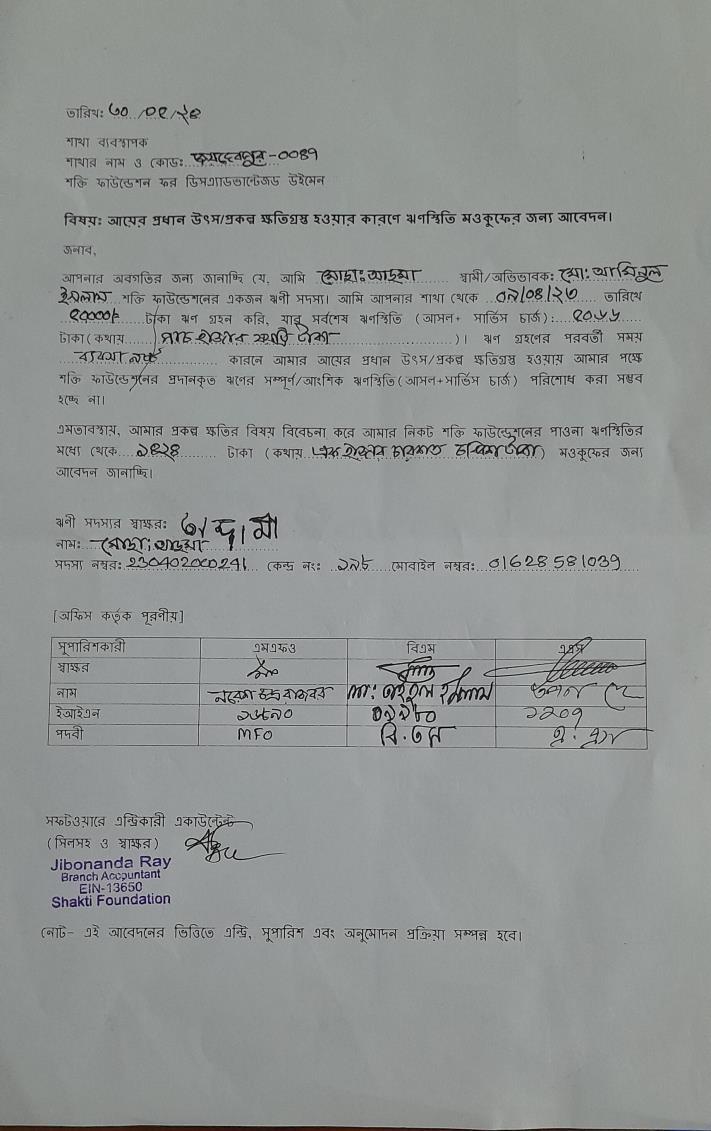 তারিখঃ ৩০/০৫/২৪
শাখা ব্যবস্থাপক
শাখার নাম ও কোডঃ জয়দেবপুর-0089
শক্তি ফাউন্ডেশন ফর ডিসএ্যাডভান্টেজড উইমেন
বিষয়: আয়ের প্রধান উৎস/প্রকল্প ক্ষতিগ্রস্ত হওয়ার কারণে ঋণস্থিতি মওকুফের জন্য আবেদন।
জনাব,
আপনার অবগতির জন্য জানাচ্ছি যে, আমি মোছাঃ স্বামী/অভিভাবক: মো: আমিনুল
ইসলাম শক্তি ফাউন্ডেশনের একজন ঋণী সদস্য। আমি আপনার শাখা থেকে তারিখে
টাকা ঋণ গ্রহন করি, যার সর্বশেষ ঋণস্থিতি (আসল+ সার্ভিস চার্জ):
টাকা (কথায় পাঁচ হাজার টাকা )। ঋণ গ্রহণের পরবর্তী সময়
ব্যবসা নষ্ট কারনে আমার আয়ের প্রধান উৎস/প্রকল্প ক্ষতিগ্রস্ত হওয়ায় আমার পক্ষে
শক্তি ফাউন্ডেশনের প্রদানকৃত ঋণের সম্পূর্ণ/আংশিক ঋণস্থিতি (আসল+সার্ভিস চার্জ) পরিশোধ করা সম্ভব
হচ্ছে না।
এমতাবস্থায়, আমার প্রকল্প ক্ষতির বিষয় বিবেচনা করে আমার নিকট শক্তি ফাউন্ডেশনের পাওনা ঋণস্থিতির
মধ্যে থেকে ১৪২৪ টাকা (কথায় এক হাজার চারশত চব্বিশ টাকা) মওকুফের জন্য
আবেদন জানাচ্ছি।
ঋণী সদস্যর স্বাক্ষর:
নাম: মোছাঃ
সদস্য নম্বর: 230402000241 কেন্দ্র নং: ১৯৮ মোবাইল নম্বর: 01628581039
[অফিস কর্তৃক পূরণীয়]
সুপারিশকারী এমএফও বিএম এএস
স্বাক্ষর
নাম নরেশ চন্দ্র মো: ইসলাম
ইআইএন
পদবী MFO বি.এম
সফটওয়ারে এন্ট্রিকারী একাউন্টেন্ট
(সিলসহ ও স্বাক্ষর)
Jibonanda Ray
Branch Accountant
EIN-13650
Shakti Foundation
নোট- এই আবেদনের ভিত্তিতে এন্ট্রি, সুপারিশ এবং অনুমোদন প্রক্রিয়া সম্পন্ন হবে।